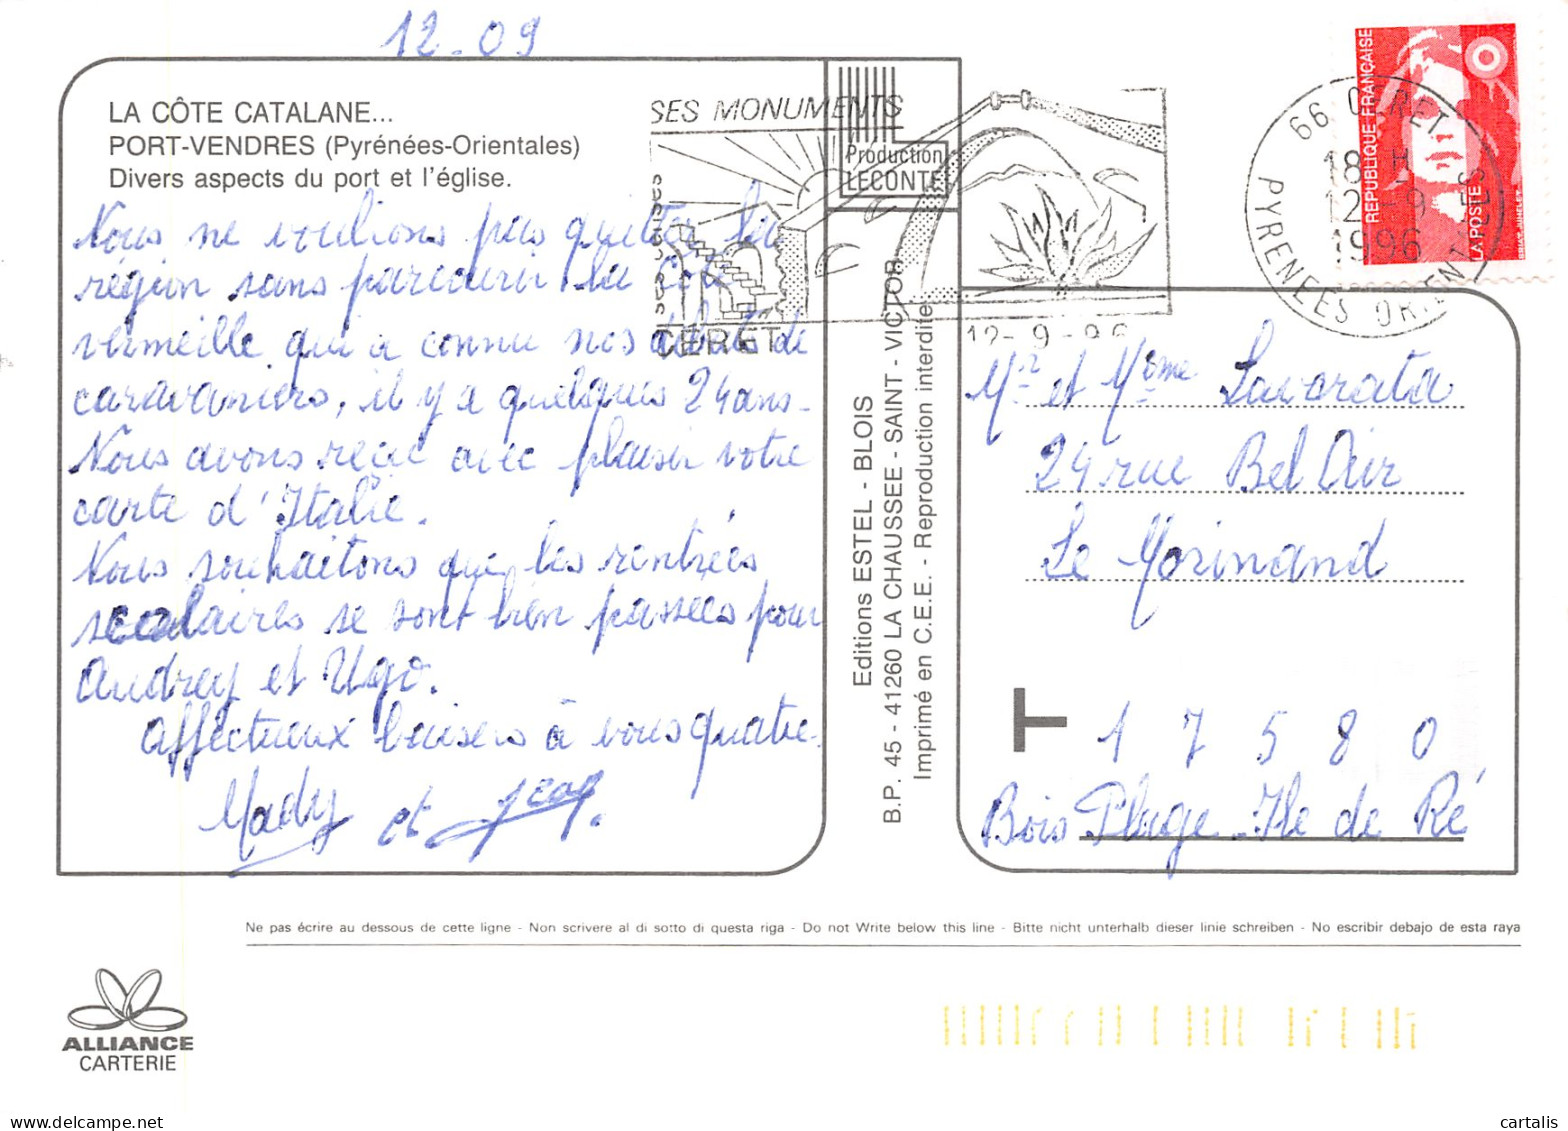 12-09
LA CÔTE CATALANE...
PORT-VENDRES (Pyrénées-Orientales)
Divers aspects du port et l'église.
Nous ne voulions pas quitter la
région sans parcourir la Côte
vermeille qui a connu nos débuts de
caravaniers, il y a quelques 24 ans.
Nous avons reçu avec plaisir votre
carte d'Italie.
Nous souhaitons que les rentrées
scolaires se sont bien passées pour
Audrey et Ugo.
Affectueux baisers à vous quatre.
Mady et Jean.
SES MONUMENTS
CERET
12-9-96
Production
LECONTE
Editions ESTEL - BLOIS
B.P. 45 - 41260 LA CHAUSSEE - SAINT - VICTOR
Imprimé en C.E.E. - Reproduction interdite
66 CERET
18 H
12-9
1996
PYRENEES ORIENTALES
REPUBLIQUE FRANÇAISE
LA POSTE
Mr et Mme Lavorata
24 rue Bel Air
Le Morinand
T 1 7 5 8 0
Bois Plage - Ile de Ré
Ne pas écrire au dessous de cette ligne - Non scrivere al di sotto di questa riga - Do not Write below this line - Bitte nicht unterhalb dieser linie schreiben - No escribir debajo de esta raya
ALLIANCE
CARTERIE
cartalis